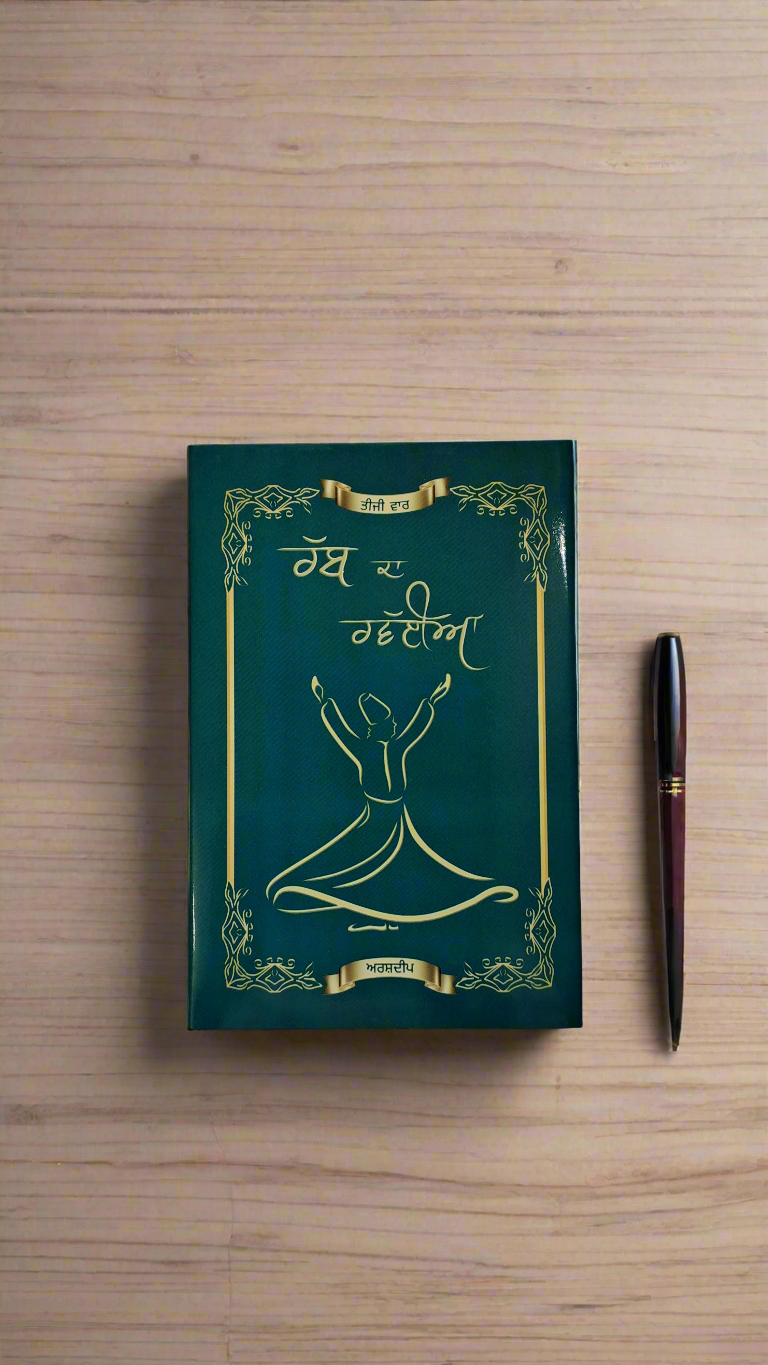 ਤੀਜੀ ਵਾਰ
ਰੱਬ ਦਾ
ਰਵੱਈਆ
ਅਰਸ਼ਦੀਪ